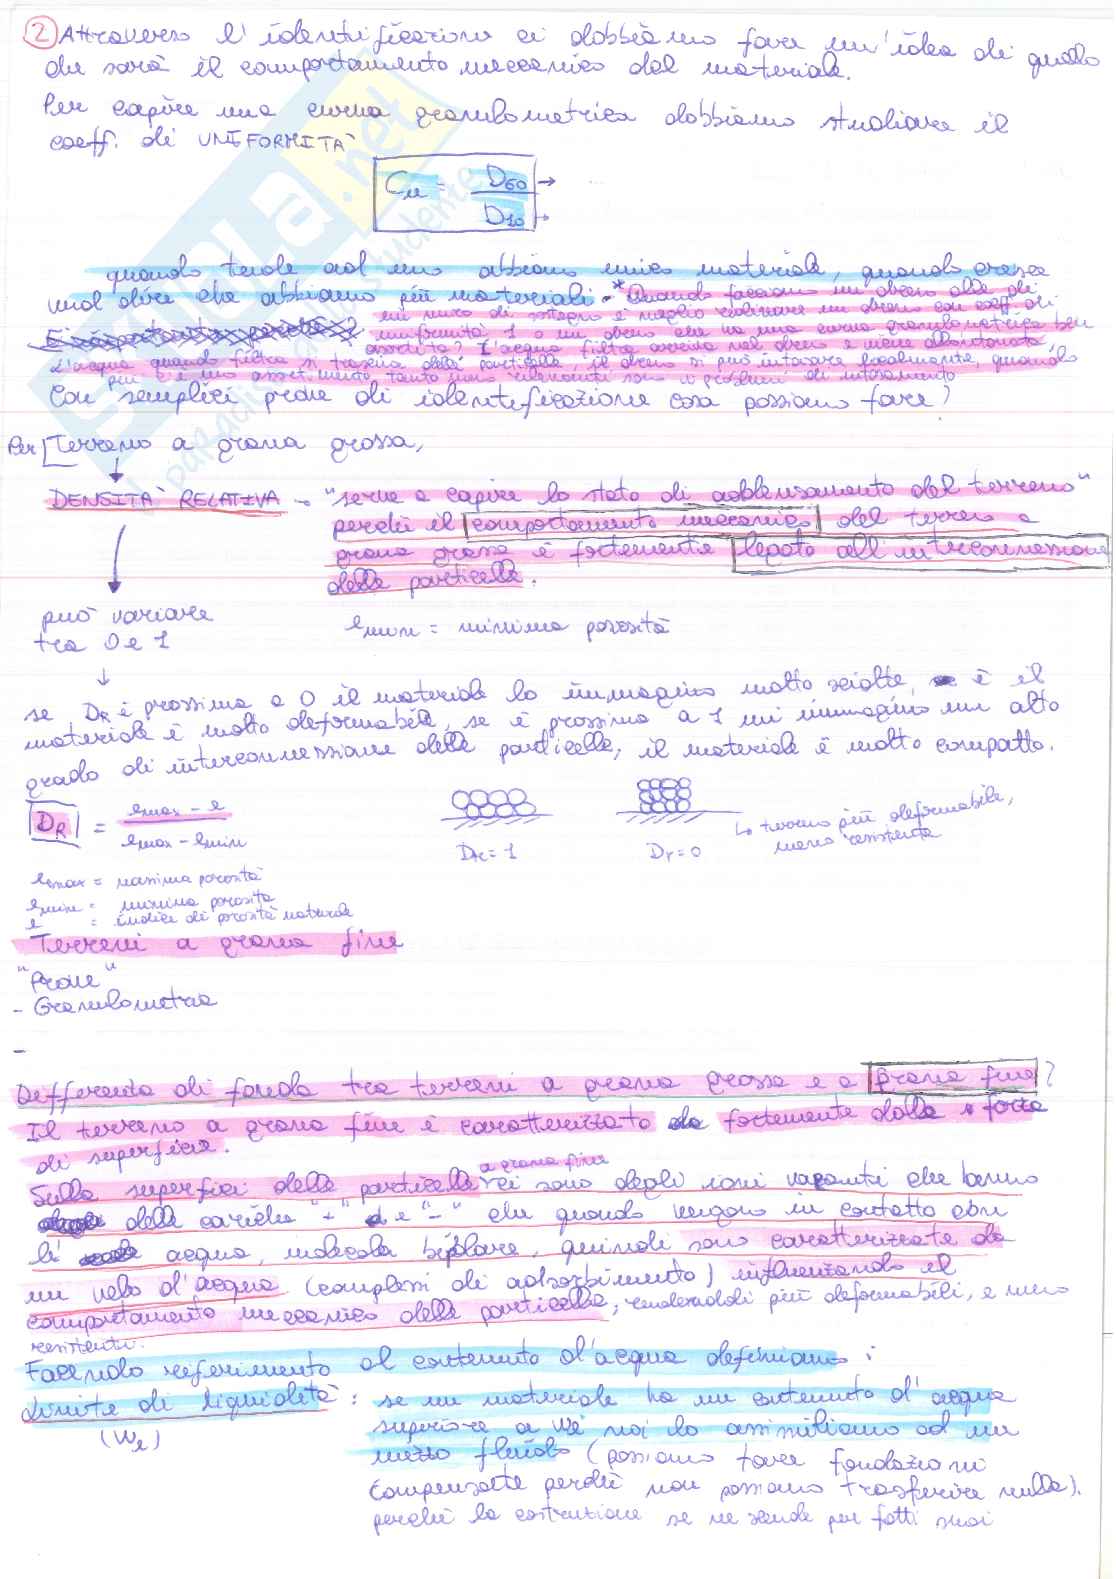 2 Attraverso l'identificazione ci dobbiamo fare un'idea di quello
che sarà il comportamento meccanico del materiale.
Per capire una curva granulometrica dobbiamo studiare il
coeff. di UNIFORMITÀ
Cu = D60 / D10
quando tende ad uno abbiamo unico materiale, quando cresce
vuol dire che abbiamo più materiali. *Quando facciamo un dreno alle di
un muro di sostegno è meglio realizzare un dreno con coeff. di
uniformità 1 o un dreno che ha una curva granulometrica ben
assortita? L'acqua filtra arriva nel dreno e viene allontanata,
L'acqua quando filtra si trascina delle particelle, il dreno si può intasare facilmente, quando
più c'è un assortimento tanto meno rilevanti sono i problemi di intasamento
Con semplici prove di identificazione cosa possiamo fare?
Per Terreno a grana grossa,
DENSITÀ RELATIVA → "serve a capire lo stato di addensamento del terreno"
perché il comportamento meccanico del terreno a
grana grossa è fortemente legato all'interconnessione
delle particelle.
può variare
tra 0 e 1
emin = minima porosità
se DR è prossima a 0 il materiale lo immagino molto sciolto, è il
materiale è molto deformabile, se è prossimo a 1 mi immagino un alto
grado di interconnessione delle particelle, il materiale è molto compatto.
DR = emax - e / emax - emin
Dr = 1
Dr = 0
↳ terreno più deformabile,
meno resistente
emax = massima porosità
emin = minima porosità
e = indice di porosità naturale
Terreni a grana fine
"Prove"
- Granulometria
-
Differenza di fondo tra terreni a grana grossa e a grana fine?
Il terreno a grana fine è caratterizzato da fortemente dalle forze
di superficie.
Sulla superfici delle particelle a grana fine ci sono degli ioni vacanti che hanno
delle cariche "+" e "-" che quando vengono in contatto con
li acqua, molecola bipolare, quindi sono caratterizzate da
un velo d'acqua (complessi di adsorbimento) influenzando il
comportamento meccanico delle particelle, rendendoli più deformabili, e meno
resistenti.
Facendo riferimento al contenuto d'acqua definiamo:
Limite di liquidità : se un materiale ha un contenuto d'acqua
(We)
superiore a We noi lo assimiliamo ad un
mezzo fluido (possiamo fare fondazioni
compensate perché non possiamo trasferire nulla).
perché la costruzione se ne scende per fatti suoi